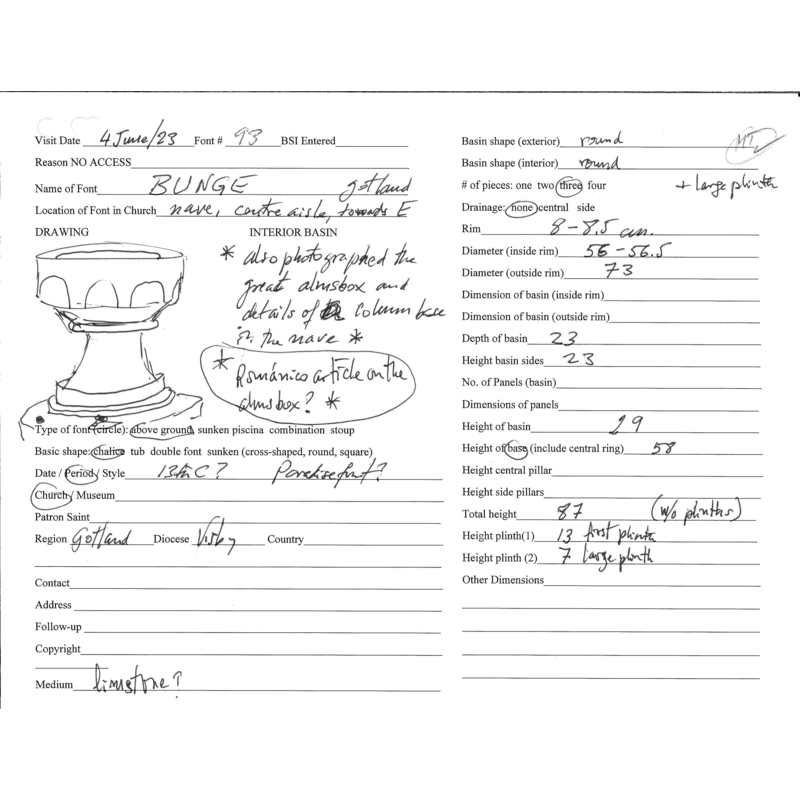 Visit Date 4 June/23 Font # 93 BSI Entered
Reason NO ACCESS
Name of Font BUNGE gotland
Location of Font in Church nave, centre aisle, towards E
DRAWING INTERIOR BASIN
* also photographed the
great almsbox and
details of column base
in the nave *
* Románico article on the
almsbox? *
Type of font (circle): above ground sunken piscina combination stoup
Basic shape: chalice tub double font sunken (cross-shaped, round, square)
Date / Period / Style 13th C? Paradise font?
Church / Museum
Patron Saint
Region Gotland Diocese Visby Country
Contact
Address
Follow-up
Copyright
Medium limstone?
Basin shape (exterior) round
MT
Basin shape (interior) round
# of pieces: one two three four + large plinth
Drainage: none central side
Rim 8-8,5 cm.
Diameter (inside rim) 56-56.5
Diameter (outside rim) 73
Dimension of basin (inside rim)
Dimension of basin (outside rim)
Depth of basin 23
Height basin sides 23
No. of Panels (basin)
Dimensions of panels
Height of basin 29
Height of base (include central ring) 58
Height central pillar
Height side pillars
Total height 87 (w/o plinths)
Height plinth(1) 13 first plinth
Height plinth (2) 7 large plinth
Other Dimensions